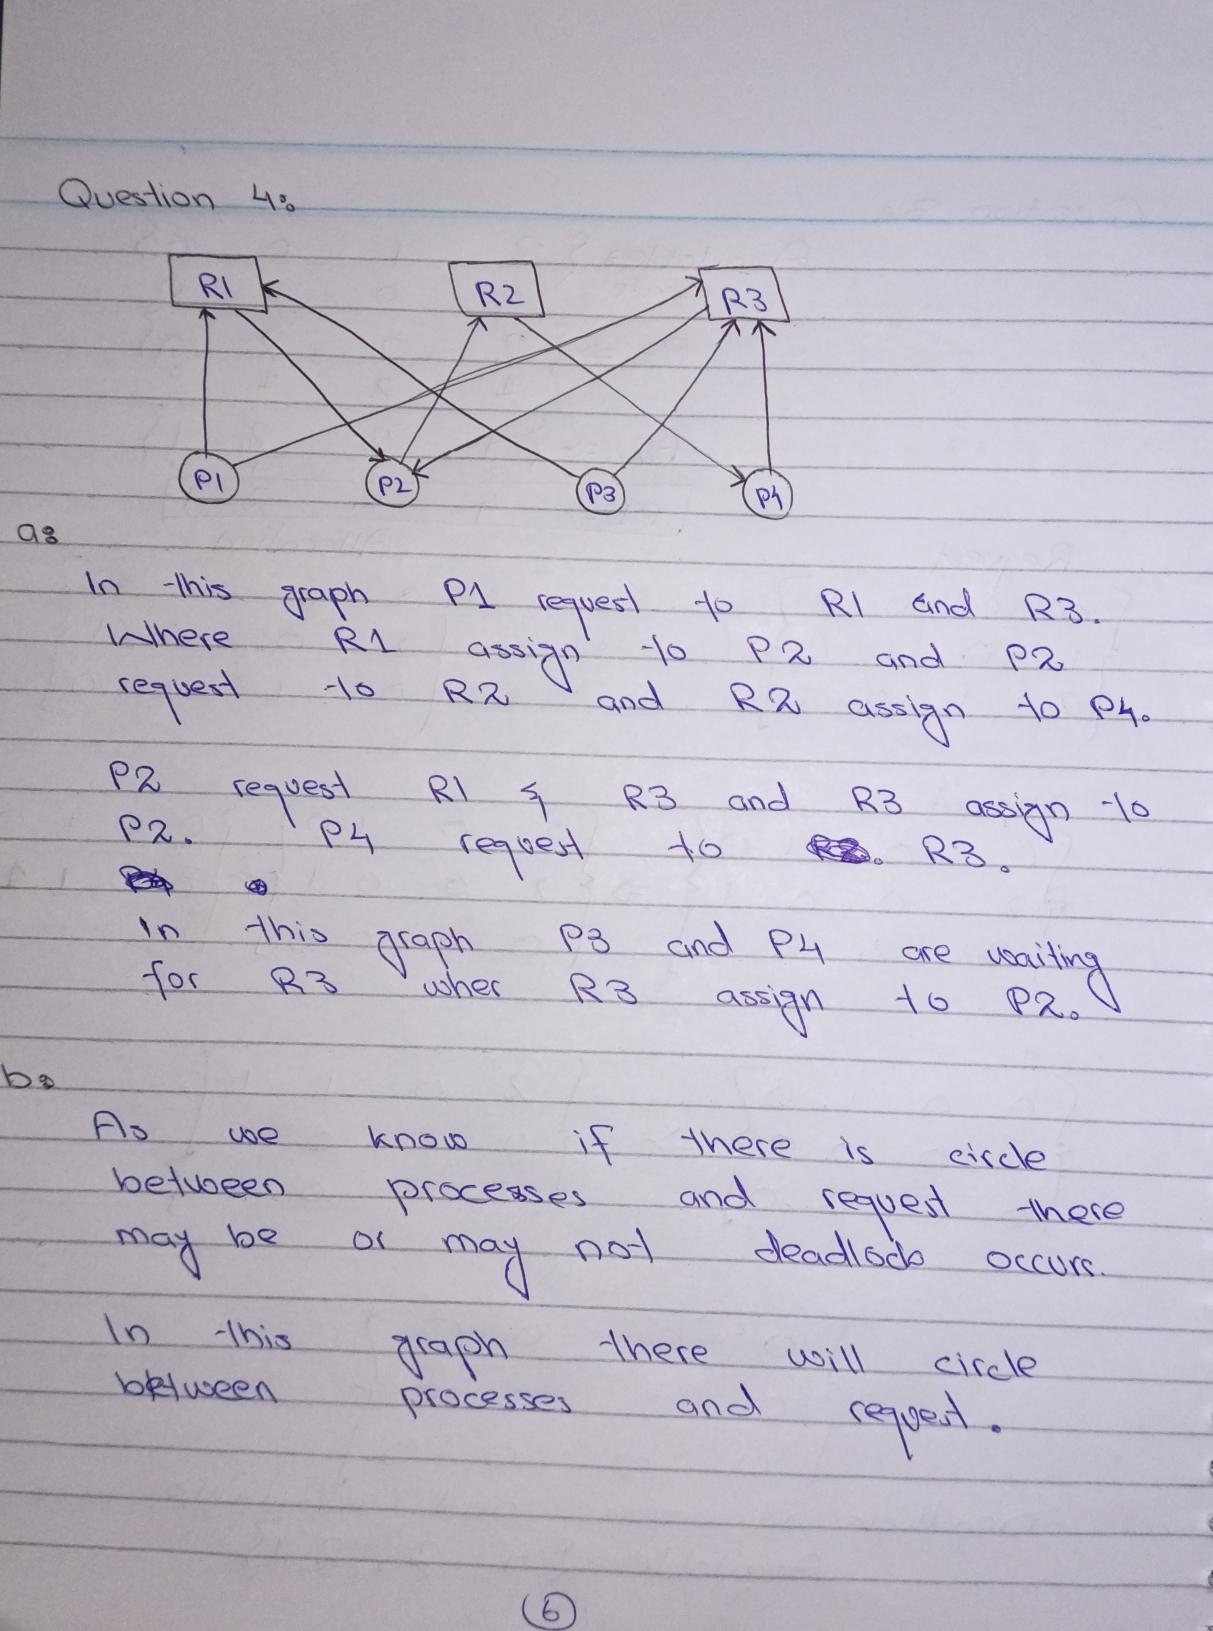 Question 4:
R1 R2 R3
P1 P2 P3 P4
a:
In this graph P1 request to R1 and R3.
Where R1 assign to P2 and P2
request to R2 and R2 assign to P4.
P2 request R1 & R3 and R3 assign to
P2. P4 request to R3.
In this graph P3 and P4 are waiting
for R3 wher R3 assign to P2.
b:
As we know if there is circle
between processes and request there
may be or may not deadlock occurs.
In this graph there will circle
between processes and request.
6